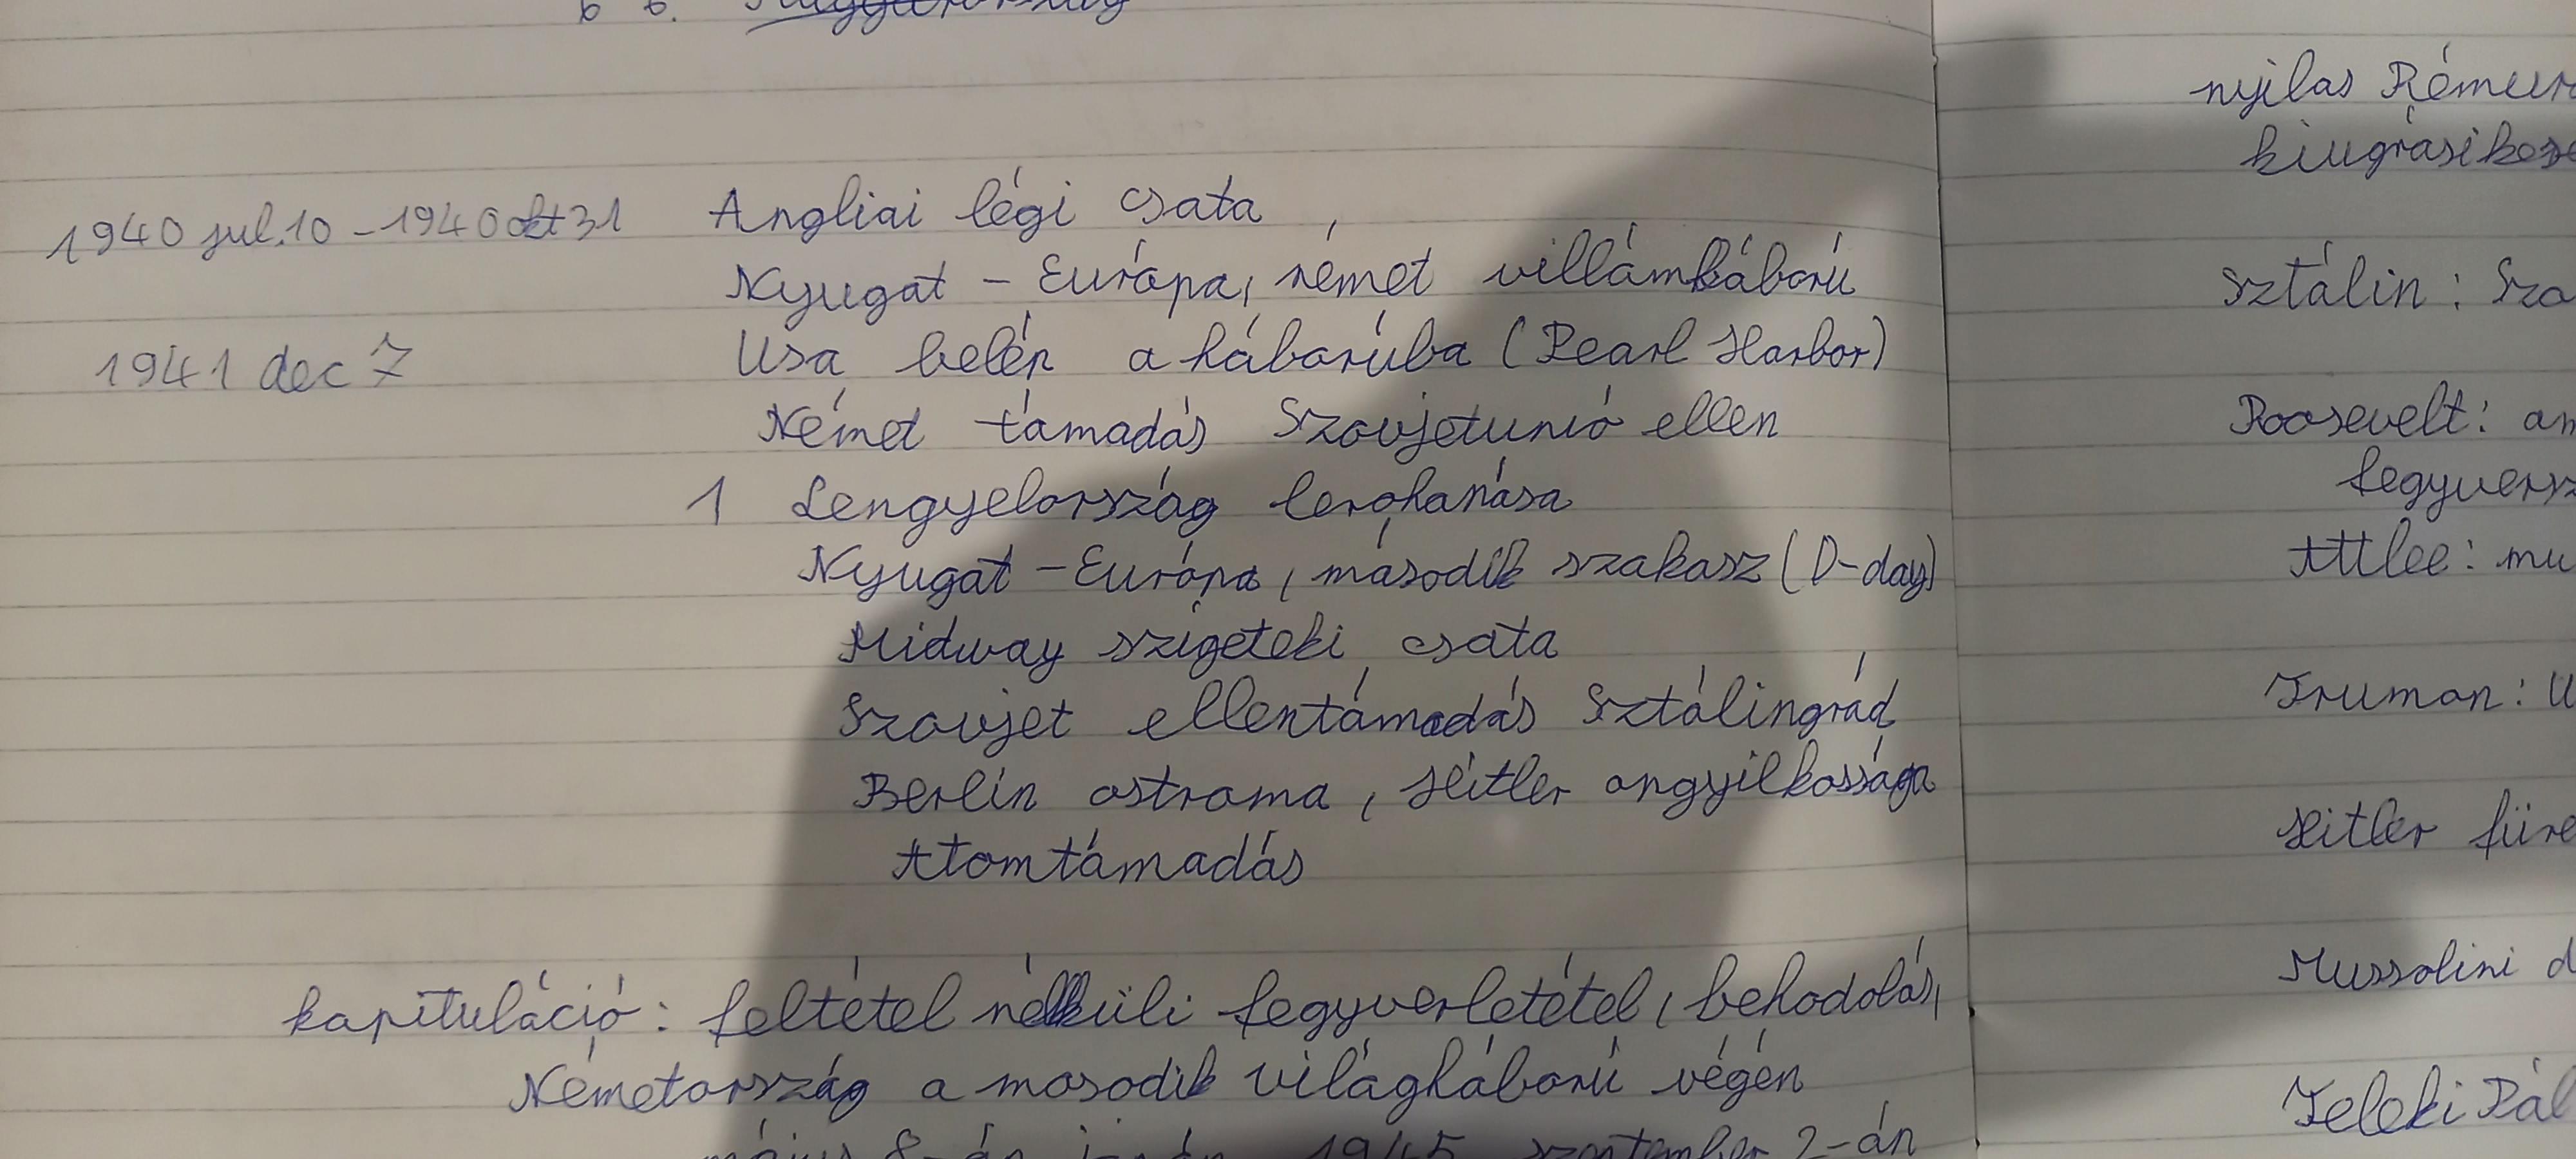 1940 jul.10 - 1940 okt 31 Angliai légi csata
Nyugat - Európa, német villámháború
1941 dec 7 Usa belép a háborúba (Pearl Harbor)
Német támadás Szovjetunió ellen
1 Lengyelország lerohanása
Nyugat - Európa, második szakasz (D-day)
Midway szigeteki csata
Szovjet ellentámadás Sztálingrád
Berlin ostroma, Hitler öngyilkossága
Atomtámadás
kapituláció: feltétel nélküli fegyverletétel, behodolás,
Németország a második világháború végén
május 8-án japán 1945 szeptember 2-án
nyilas
Sztálin:
Roosevelt:
Attlee:
Truman:
Hitler
Mussolini
Teleki Pál